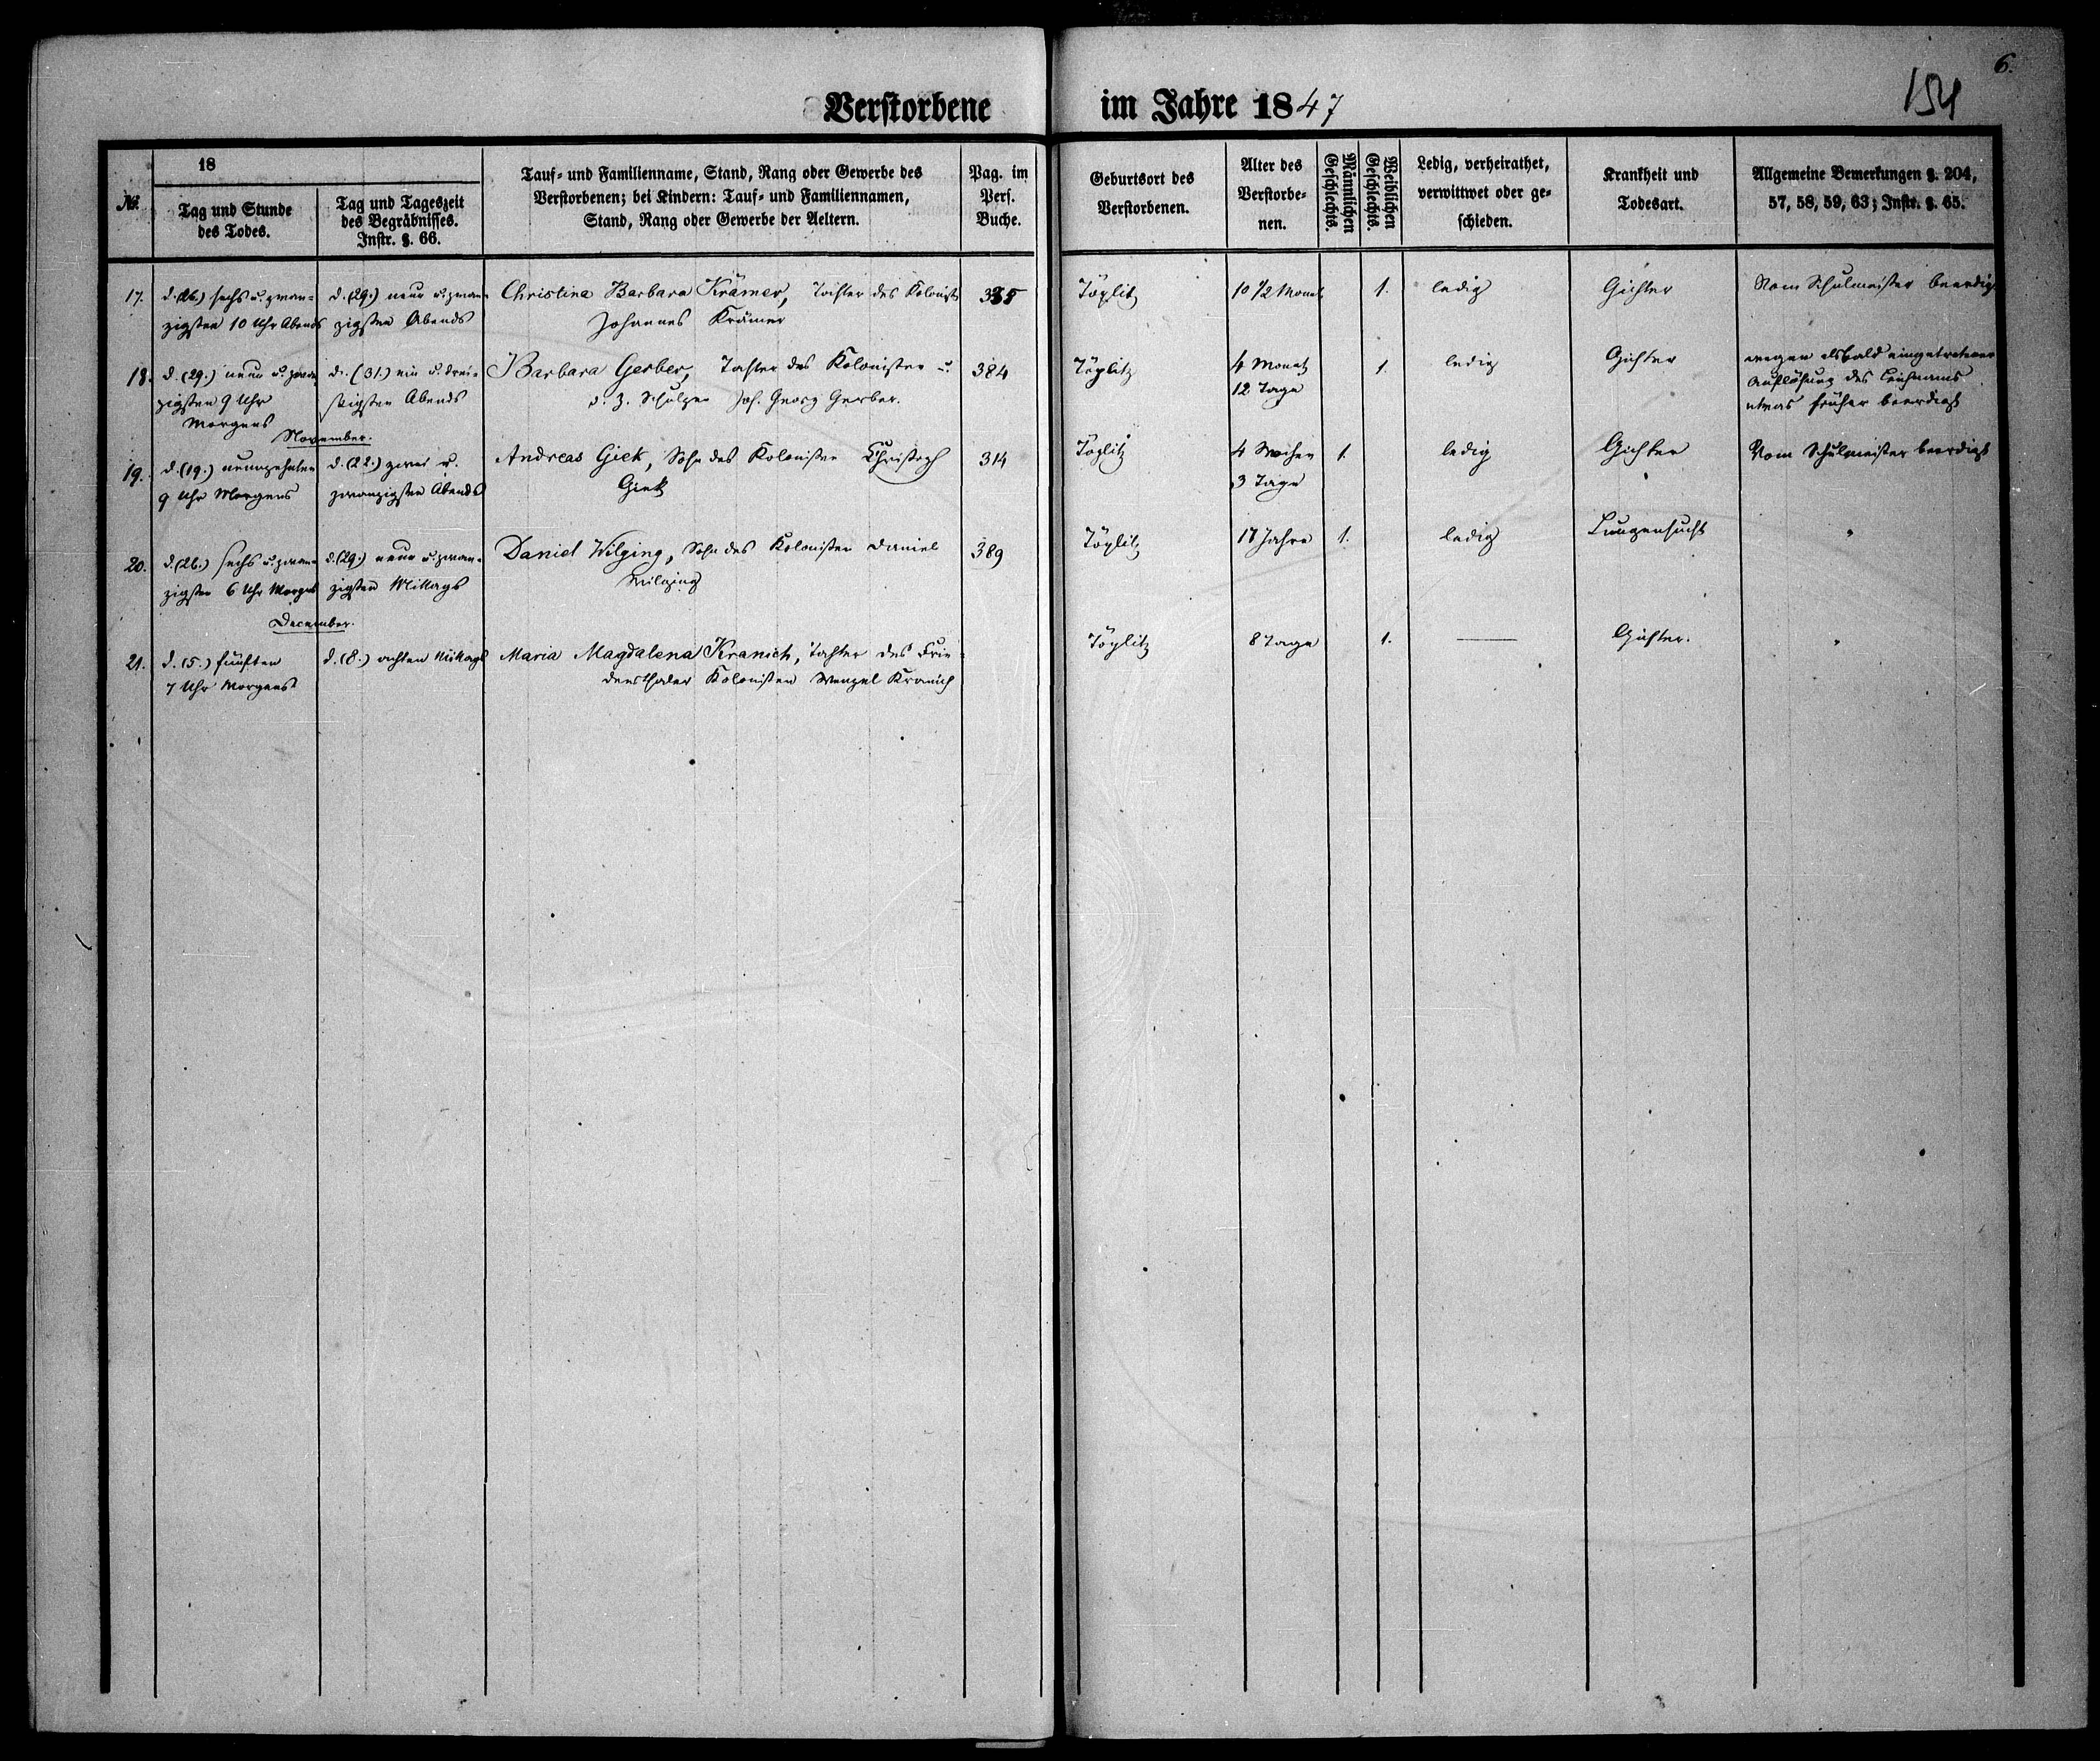 6.
154
Verstorbene im Jahre 1847
No.
18
Tag und Stunde
des Todes.
Tag und Tageszeit
des Begräbnisses.
Instr. §. 66.
Tauf- und Familienname, Stand, Rang oder Gewerbe des
Verstorbenen; bei Kindern: Tauf- und Familiennamen,
Stand, Rang oder Gewerbe der Aeltern.
Pag. im
Pers.
Buche.
Geburtsort des
Verstorbenen.
Alter des
Verstorbe-
nen.
Männlichen
Geschlechts.
Weiblichen
Geschlechts.
Ledig, verheirathet,
verwittwet oder ge-
schieden.
Krankheit und
Todesart.
Allgemeine Bemerkungen §. 204,
57, 58, 59, 63; Instr. §. 65.
17.
d. (26.) sechs u. zwan-
zigsten 10 Uhr Abends
d. (29.) neun u. zwan-
zigsten Abends
Christina Barbara Krämer, Tochter des Kolonist
Johannes Krämer
385
Töplitz
10 1/2 Monat
1.
ledig
Gichter
Vom Schulmeister beerdigt
18.
d. (29.) neun u. zwan
zigsten 9 Uhr
Morgens
d. (31.) ein u. drei-
ßigsten Abends
Barbara Gerber, Tochter des Kolonisten u.
d. z. Schulzen Joh. Georg Gerber.
384
Töplitz
4 Monat
12 Tage
1.
ledig
Gichter
wegen alsbald eingetretener
Auflösung des Leichnams
etwas früher beerdigt
November.
19.
d. (19.) neunzehnten
9 Uhr Morgens
d. (22.) zwei u.
zwanzigsten Abends
Andreas Giek, Sohn des Kolonisten Christoph
Giek
314
Töplitz
4 Wochen
3 Tage
1.
ledig
Gichter
Vom Schulmeister beerdigt
20.
d. (26.) sechs u. zwan-
zigsten 6 Uhr Morgens
d. (29.) neun u. zwan-
zigsten Mittags
Daniel Wilging, Sohn des Kolonisten Daniel
Wilging
389
Töplitz
17 Jahre
1.
ledig
Lungensucht
"
December.
21.
d. (5.) fünften
7 Uhr Morgens
d. (8.) achten Mittags
Maria Magdalena Kranich, Tochter des Frie-
densthaler Kolonisten Wenzel Kranich
Töplitz
8 Tage
1.
—
Gichter.
"